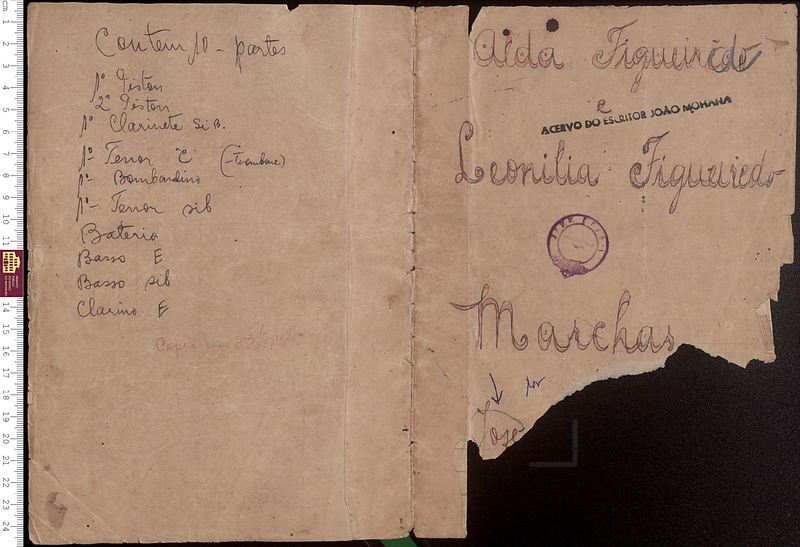 Contem 10 - partes
1º Piston
2º Piston
1º Clarinete Si B.
1º- Tenor "C" (-Trombone)
1º- Bombardino
1º- Tenor sib
Bateria
Basso E
Basso sib
Clarino E
Copia em
Aida Figueirêdo
e
ACERVO DO ESCRITOR JOÃO MOHANA
Leonilia Figueirêdo
Marchas
por
José